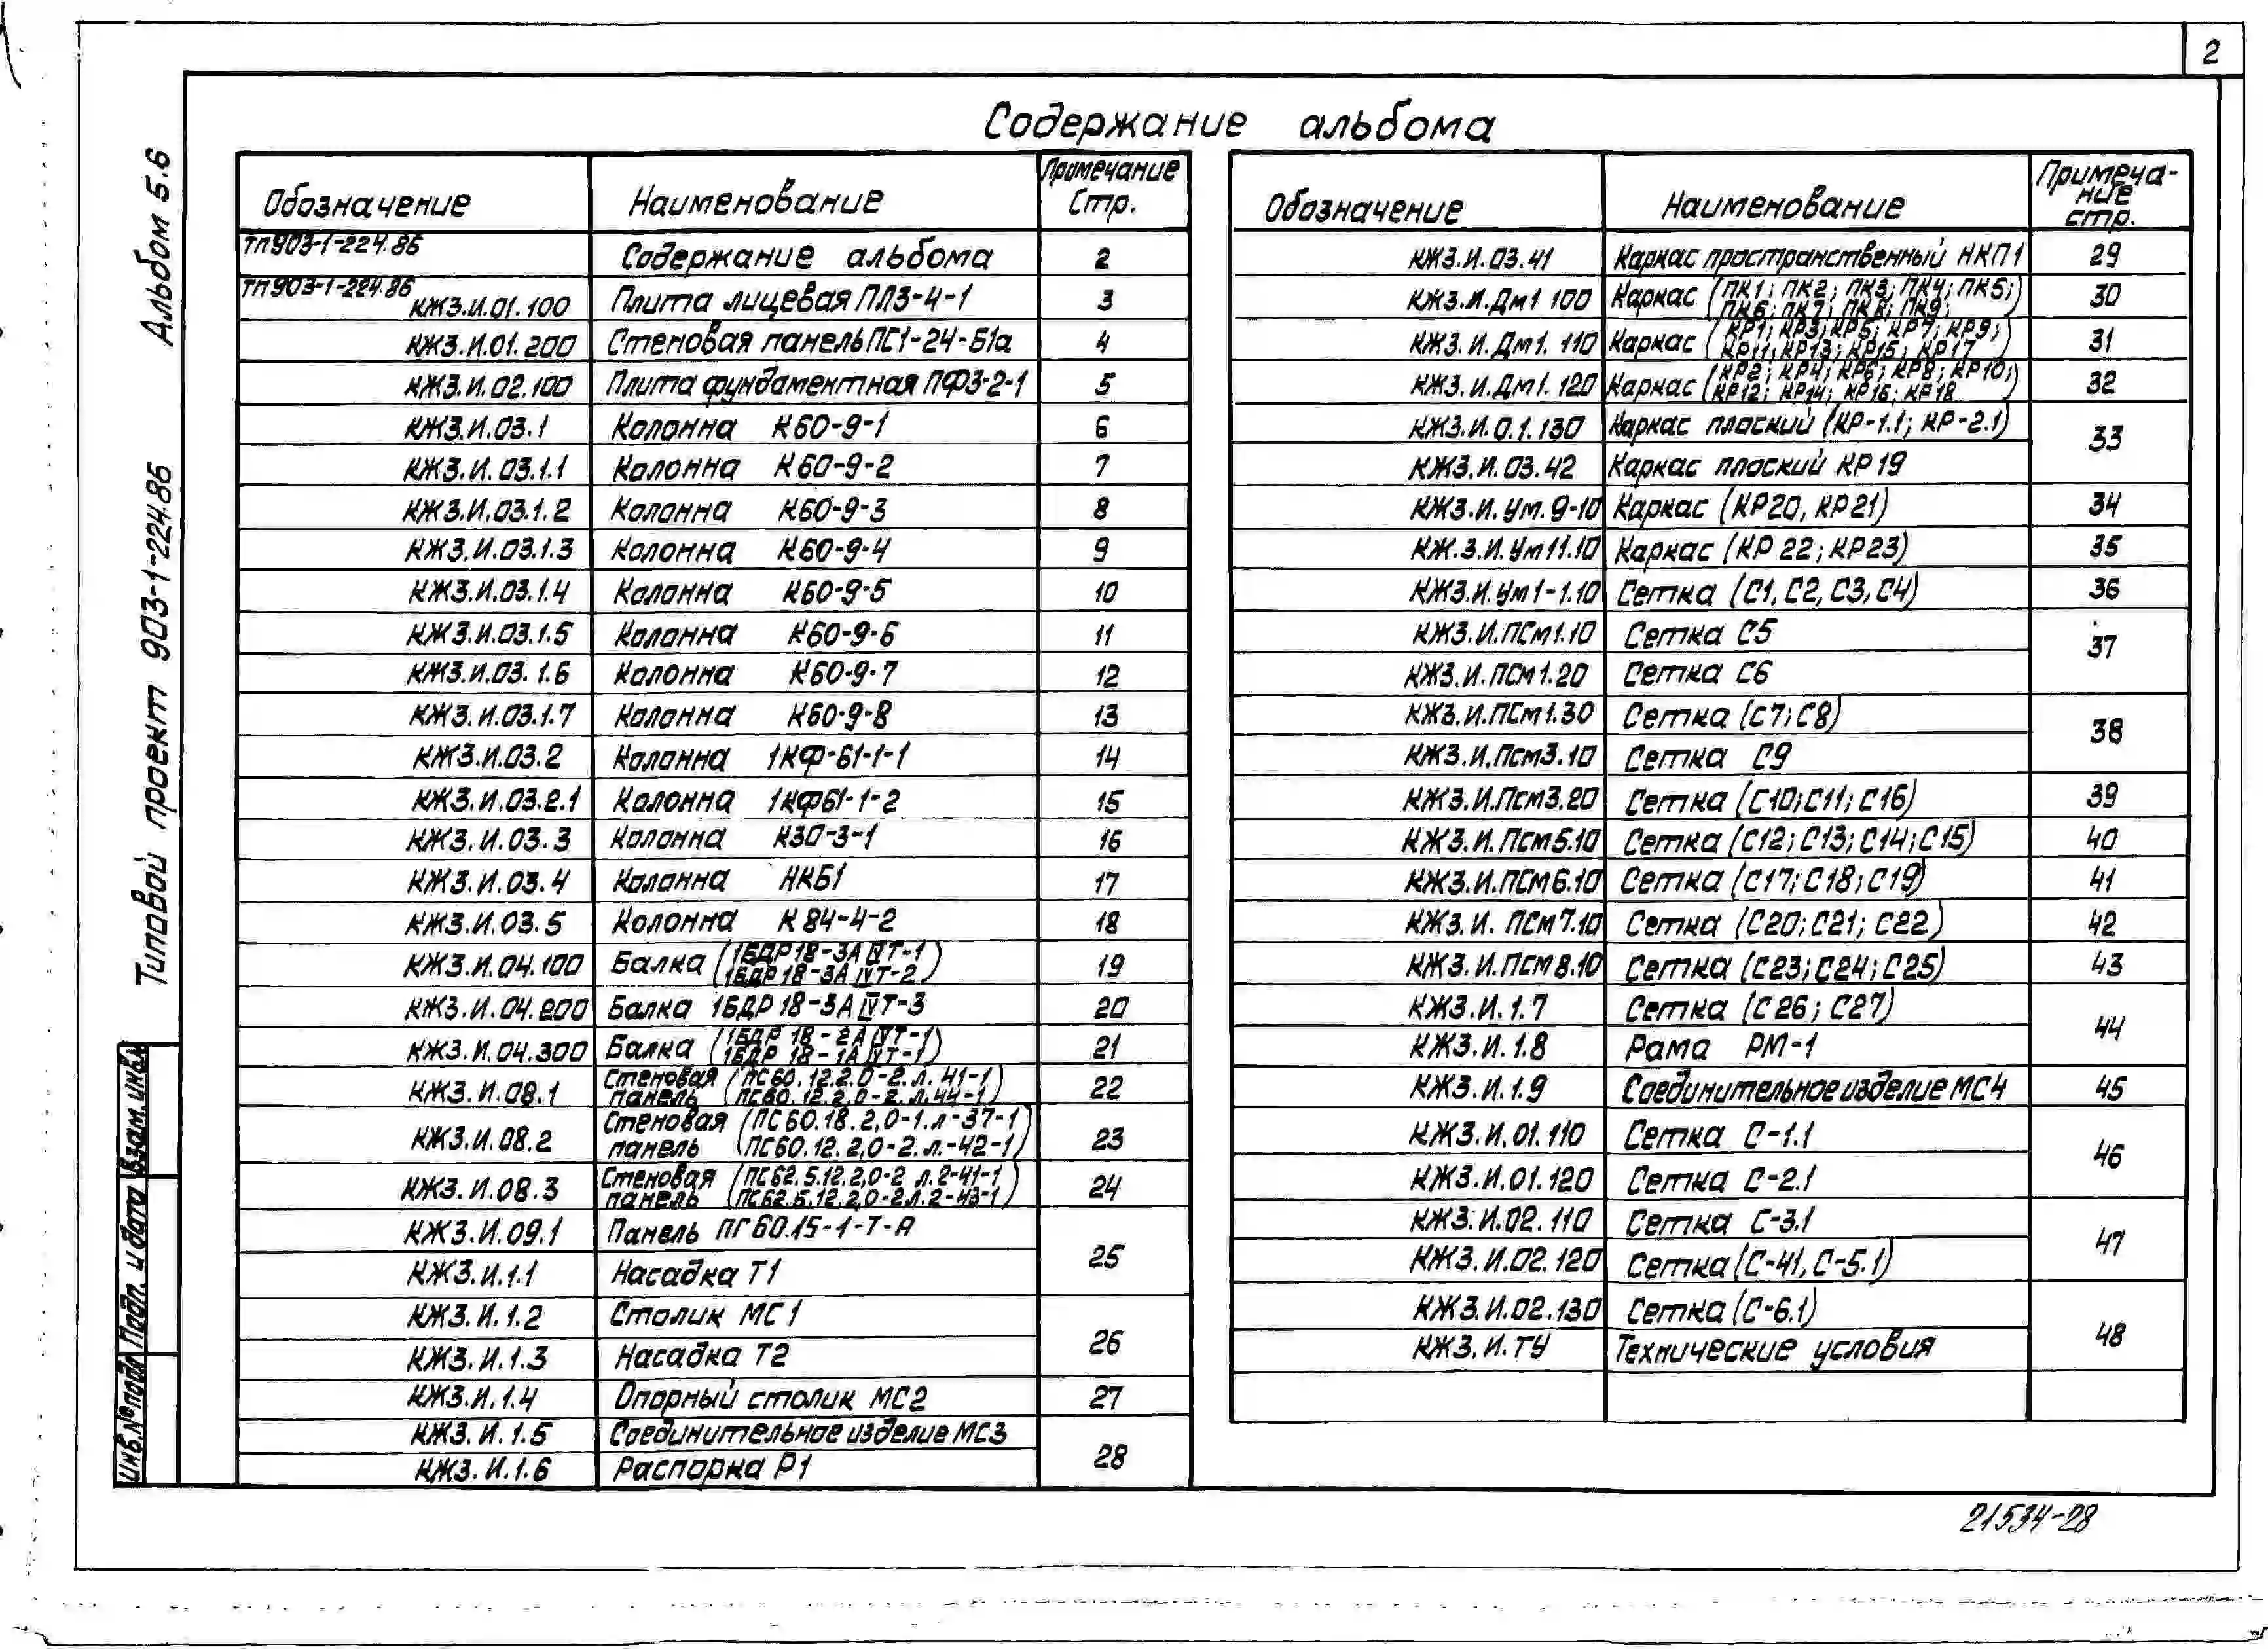 2
Содержание альбома
Альбом 5.6
Типовой проект 903-1-224.86
Взам. инв.№
Подп. и дата
Инв.№ подл
Обозначение Наименование Примечание Стр.
ТП903-1-224.86 Содержание альбома 2
ТП903-1-224.86
КЖ3.И.01.100 Плита лицевая ПЛ3-4-1 3
КЖ3.И.01.200 Стеновая панель ПС1-24-Б1а 4
КЖ3.И.02.100 Плита фундаментная ПФ3-2-1 5
КЖ3.И.03.1 Колонна К60-9-1 6
КЖ3.И.03.1.1 Колонна К60-9-2 7
КЖ3.И.03.1.2 Колонна К60-9-3 8
КЖ3.И.03.1.3 Колонна К60-9-4 9
КЖ3.И.03.1.4 Колонна К60-9-5 10
КЖ3.И.03.1.5 Колонна К60-9-6 11
КЖ3.И.03.1.6 Колонна К60-9-7 12
КЖ3.И.03.1.7 Колонна К60-9-8 13
КЖ3.И.03.2 Колонна 1КФ-61-1-1 14
КЖ3.И.03.2.1 Колонна 1КФ61-1-2 15
КЖ3.И.03.3 Колонна К30-3-1 16
КЖ3.И.03.4 Колонна НКБ1 17
КЖ3.И.03.5 Колонна К84-4-2 18
КЖ3.И.04.100 Балка (1БДР18-3АIVТ-1
1БДР18-3АIVТ-2) 19
КЖ3.И.04.200 Балка 1БДР18-3АIVТ-3 20
КЖ3.И.04.300 Балка (1БДР 18-2АIVТ-1
1БДР 18-1АIVТ-1) 21
КЖ3.И.08.1 Стеновая (ПС60.12.2.0-2.л.41-1
панель ПС60.12.2.0-2.л.44-1) 22
КЖ3.И.08.2 Стеновая (ПС60.18.2,0-1.л-37-1
панель ПС60.12.2,0-2.л.-42-1) 23
КЖ3.И.08.3 Стеновая (ПС62.5.12.2,0-2 л.2-41-1
панель ПС62.5.12.2,0-2л.2-43-1) 24
КЖ3.И.09.1 Панель ПГ60.15-1-Т-А
25
КЖ3.И.1.1 Насадка Т1
КЖ3.И.1.2 Столик МС1
26
КЖ3.И.1.3 Насадка Т2
КЖ3.И.1.4 Опорный столик МС2 27
КЖ3.И.1.5 Соединительное изделие МС3
28
КЖ3.И.1.6 Распорка Р1
Обозначение Наименование Примеча-
ние
стр.
КЖ3.И.03.41 Каркас пространственный НКП1 29
КЖ3.И.Дм1 100 Каркас (ПК1; ПК2; ПК3; ПК4; ПК5;)
ПК6; ПК7; ПК8; ПК9; 30
КЖ3.И.Дм1.110 Каркас (КР1; КР3; КР5; КР7; КР9;
КР11; КР13; КР15; КР17) 31
КЖ3.И.Дм1.120 Каркас (КР2; КР4; КР6; КР8; КР10;)
КР12; КР14; КР16; КР18 32
КЖ3.И.0.1.130 Каркас плоский (КР-1.1; КР-2.1)
33
КЖ3.И.03.42 Каркас плоский КР19
КЖ3.И.Ум.9-10 Каркас (КР20, КР21) 34
КЖ.3.И.Ум11.10 Каркас (КР22; КР23) 35
КЖ3.И.Ум1-1.10 Сетка (С1, С2, С3, С4) 36
КЖ3.И.ПСм1.10 Сетка С5
37
КЖ3.И.ПСм1.20 Сетка С6
КЖ3.И.ПСм1.30 Сетка (С7; С8)
38
КЖ3.И.Псм3.10 Сетка С9
КЖ3.И.Псм3.20 Сетка (С10; С11; С16) 39
КЖ3.И.ПСм5.10 Сетка (С12; С13; С14; С15) 40
КЖ3.И.ПСм6.10 Сетка (С17; С18; С19) 41
КЖ3.И. ПСм7.10 Сетка (С20; С21; С22) 42
КЖ3.И.ПСм8.10 Сетка (С23; С24; С25) 43
КЖ3.И.1.7 Сетка (С26; С27)
44
КЖ3.И.1.8 Рама РМ-1
КЖ3.И.1.9 Соединительное изделие МС4 45
КЖ3.И.01.110 Сетка С-1.1
46
КЖ3.И.01.120 Сетка С-2.1
КЖ3.И.02.110 Сетка С-3.1
47
КЖ3.И.02.120 Сетка (С-41, С-5.1)
КЖ3.И.02.130 Сетка (С-6.1)
48
КЖ3.И.ТУ Технические условия
21534-28